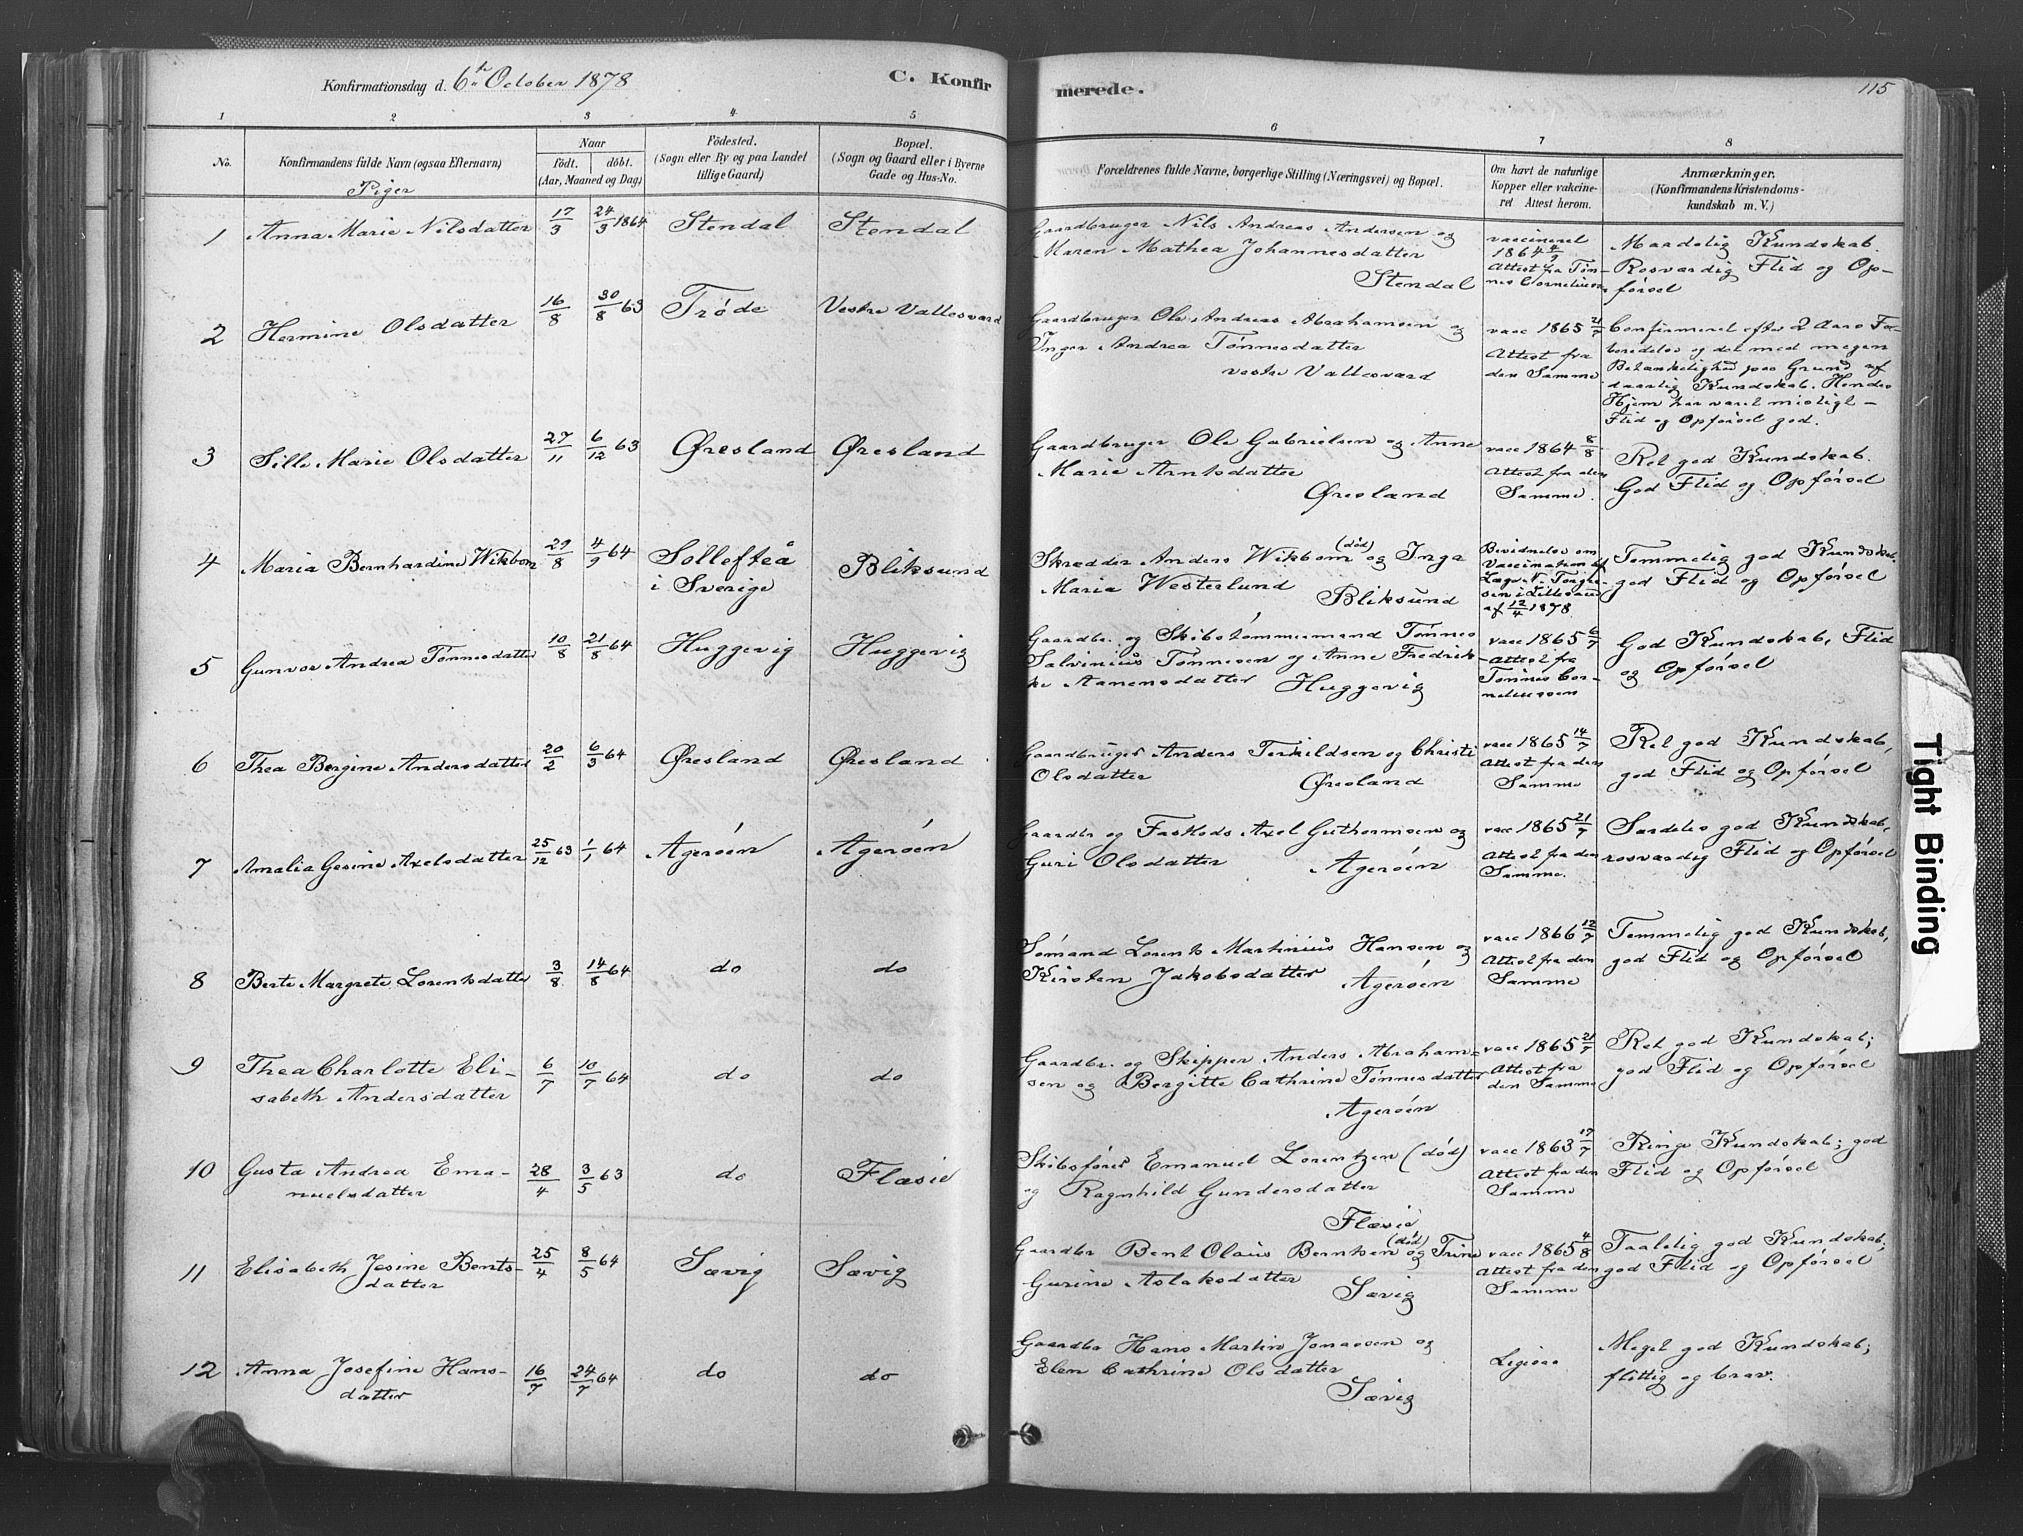 Konfirmationsdag d. 6te October 1878
C. Konfirmerede.
115
1 2 3 4 5 6 7 8
No.
Konfirmandens fulde Navn (ogsaa Efternavn)
Naar
födt. döbt.
(Aar, Maaned og Dag)
Födested.
(Sogn eller By og paa Landet
tillige Gaard)
Bopæl.
(Sogn og Gaard eller i Byerne
Gade og Hus-No.
Forældrenes fulde Navne, borgerlige Stilling (Næringsvei) og Bopæl.
Om havt de naturlige
Kopper eller vakcine-
ret Attest herom.
Anmærkninger.
(Konfirmandens Kristendoms-
kundskab m. V.)
Piger
1 Anna Marie Nilsdatter 17/3 24/3 1864 Stendal Stendal
Gaardbruger Nils Andreas Andersen og
Maren Mathea Johannesdatter
Stendal
vaccineret
1864 4/9
Attest fra Tøn-
nes Cornelius
Maadelig Kundskab.
Rosværdig Flid og Op-
førsel
2 Hermine Olsdatter 16/8 30/8 63 Trøde Vestre Vallesværd
Gaardbruger Ole Andreas Abrahamsen og
Inger Andrea Tønnesdatter
vestre Vallesværd
vacc 1865 21/7
Attest fra
den Samme
Confirmeret efter 2 Aars For-
beredelse og det med megen
Betænkelighed paa Grund af
daarlig Kundskab. Hendes
Hjem har været misligt -
Flid og Opførsel god.
3 Sille Marie Olsdatter 27/11 6/12 63 Øresland Øresland
Gaardbruger Ole Gabrielsen og Anne
Marie Arntsdatter
Øresland
vacc 1864 8/8
Attest fra den
Samme.
Ret god Kundskab.
God Flid og Opførsel
4 Maria Bernhardine Wikbom 29/8 4/9 64 Sollefteå
i Sverige Bliksund
Skrædder Anders Wikbom (død) og Inga
Maria Westerlund
Bliksund
Bevidnelse om
Vaccination af
Læge N. Torgersen i Lillesand
af 12/4 1878
Temmelig god Kundskab.
god Flid og Opførsel
5 Gunvor Andrea Tønnesdatter 10/8 21/8 64 Huggevig Huggevig
Gaardbr. og Skibstømmermand Tønnes
Salvinius Tønnesen og Anne Fredrik-
ke Aanensdatter Huggevig
vacc 1865 6/7
Attest fra
Tønnes Cor-
neliussen
God Kundskab, Flid
og Opførsel
6 Thea Bergine Andersdatter 20/2 6/3 64 Øresland Øresland
Gaardbruger Anders Terkildsen og Christi
Olsdatter
Øresland
vacc 1865 14/7
Attest fra den
Samme
Ret god Kundskab,
god Flid og Opførsel
7 Amalia Gesine Axelsdatter 25/12 63 1/1 64 Agerøen Agerøen
Gaardbr og Fastlods Axel Guthormsen og
Guri Olsdatter
Agerøen
vacc 1865 21/7
Attest fra den
Samme.
Særdeles god Kundskab,
rosværdig Flid og Opførsel
8 Berte Margrete Lorentsdatter 3/8 14/8 64 do do
Sømand Lorents Martinius Hansen og
Kirsten Jakobsdatter
Agerøen
vacc 1866 12/7
Attest fra den
Samme
Temmelig god Kundskab,
god Flid og Opførsel
9 Thea Charlotte Eli-
sabeth Andersdatter 6/7 10/7 64 do do
Gaardbr. og Skipper Anders Abraham-
sen og Bergitte Cathrine Tønnesdatter
Agerøen
vacc 1865 21/7
Attest fra
den Samme
Ret god Kundskab;
god Flid og Opførsel
10 Gusta Andrea Ema-
nuelsdatter 28/4 3/5 63 do Flæsie
Skibsfører Emanuel Lorentzen (død)
og Ragnhild Gundersdatter
Flæsie
vacc 1863 17/7
Attest fra den
Samme
Ringe Kundskab; god
Flid og Opførsel
11 Elisabeth Jesine Bents-
datter 25/4 8/5 64 Sævig Sævig
Gaardbr Bent Olaus Berntsen (død) og Trine
Gurine Aslaksdatter
Sævig
vacc 1865 4/8
Attest fra den
Samme
Taalelig god Kundskab,
god Flid og Opførsel
12 Anna Josefine Hans-
datter 16/7 24/7 64 do do
Gaardbr Hans Martin Jonassen og
Elen Cathrine Olsdatter
Sævig
Ligesaa
Meget god Kundskab;
flittig og brav.
Tight Binding